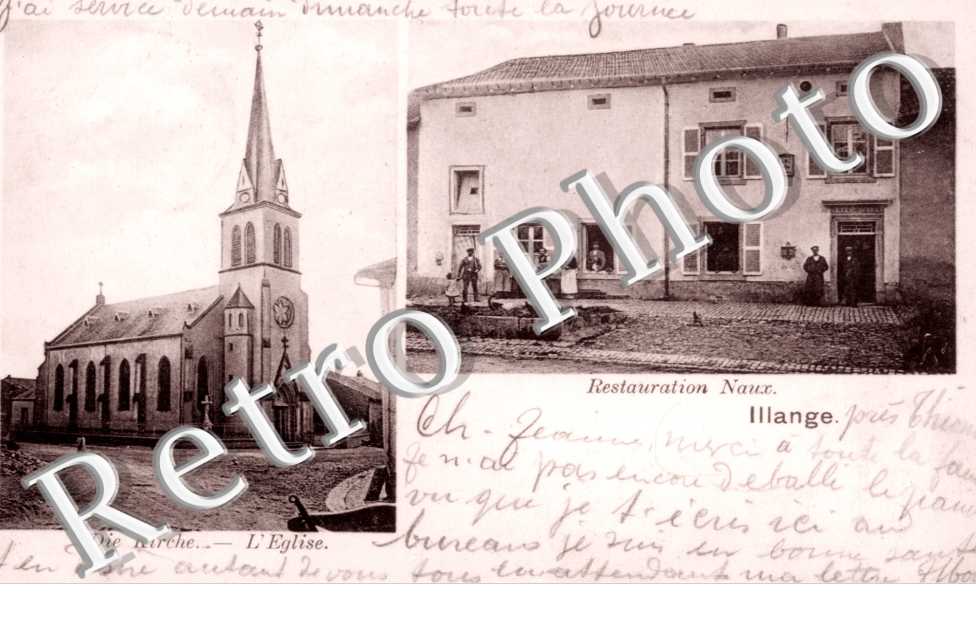 j'ai service demain dimanche toute la journée
Retro Photo
Restauration Naux.
Illange. près Thion
Ch. Jeanne, merci à toute la fam
Je n'ai pas encor déballé le panie
vu que je t'écris ici au
Die Kirche. — L'Eglise.
bureaus je suis en bonne santé
et en autant de vous tous en attendant ma lettre